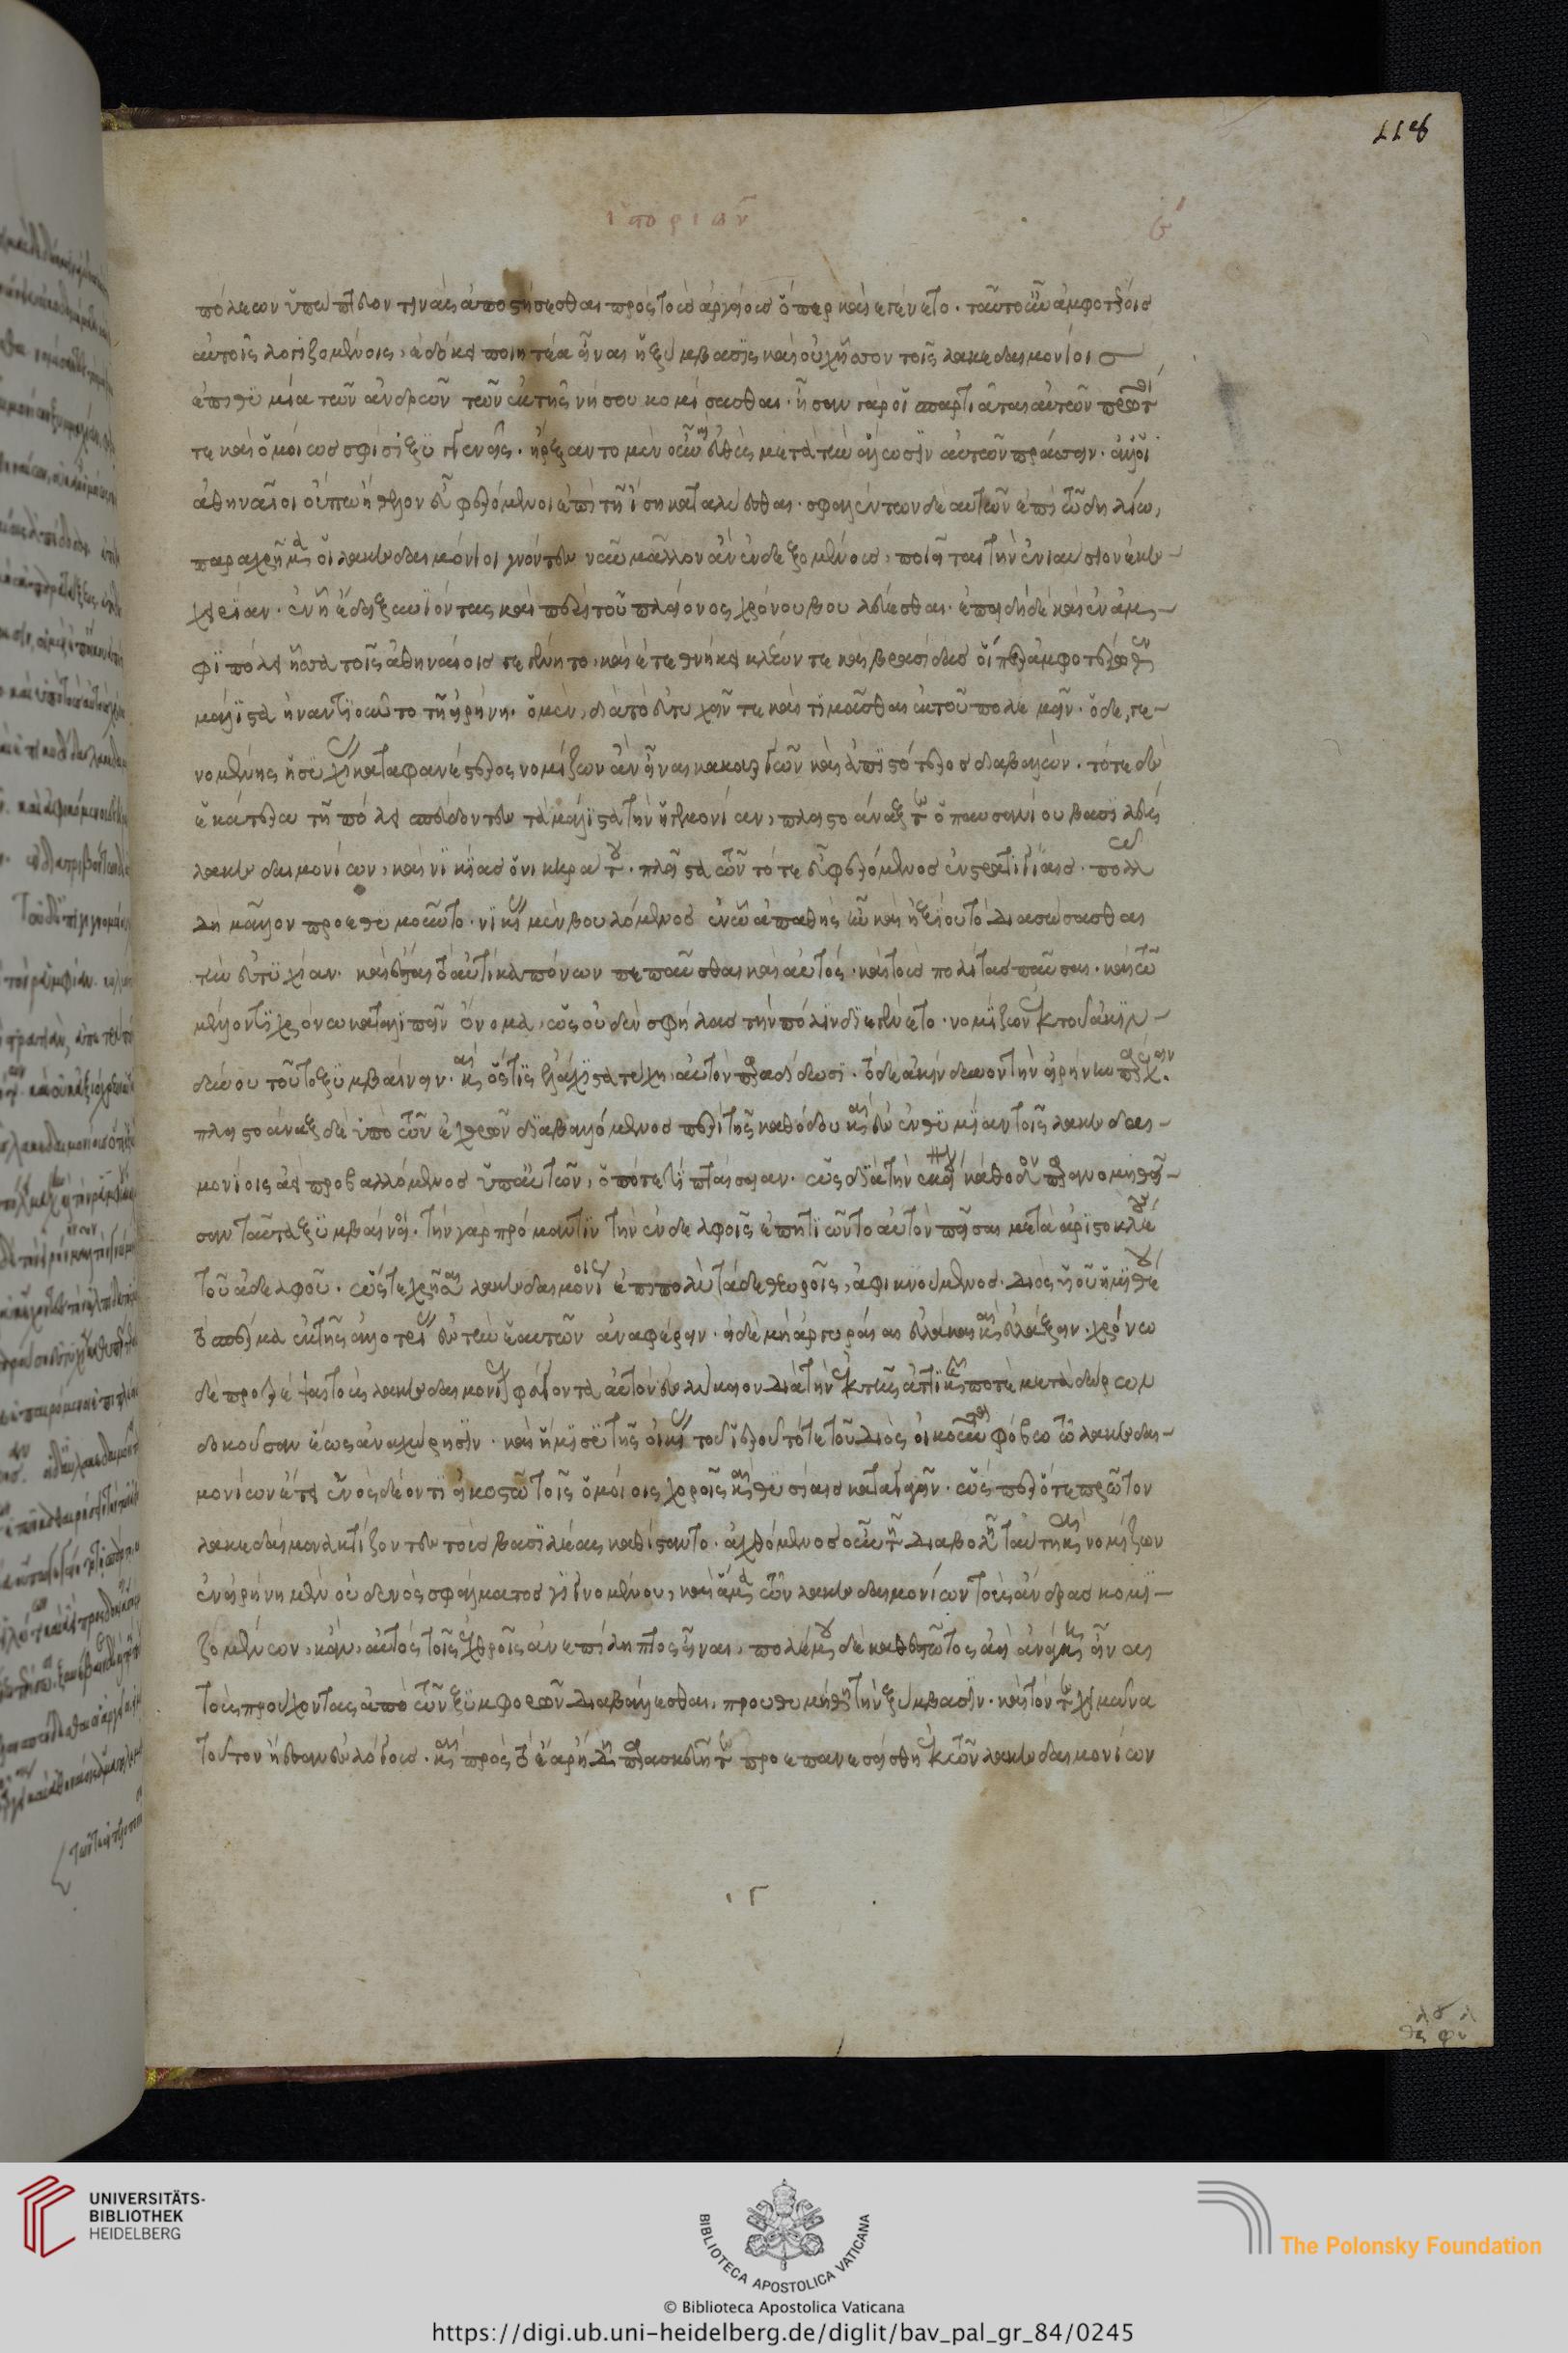 ἱστοριῶν ϛ
πόλεων ὑπώπτευόν τινας ἀποστήσεσθαι πρὸς τοὺς ἀργείους ὅπερ καὶ ἐγένετο. ταῦτ οὖν ἀμφοτέροις
αὐτοῖς λογιζομένοις, ἐδόκει ποιητέα εἶναι ἡ ξύμβασις καὶ οὐχ ἧσσον τοῖς λακεδαιμονίοις
ἐπιθυμία τῶν ἀνδρῶν τῶν ἐκ τῆς νήσου κομίσασθαι. ἦσαν γὰρ οἱ σπαρτιᾶται αὐτῶν πρῶτοί
τε καὶ ὁμοίως σφίσι ξυγγενεῖς. ἤρξαντο μὲν οὖν εὐθὺς μετὰ τὴν ἅλωσιν αὐτῶν πράσσειν. ἀλλ οἱ
ἀθηναῖοι οὔπω ἤθελον εὖ φερόμενοι ἐπὶ τῇ ἴσῃ καταλύεσθαι. σφαλέντων δὲ αὐτῶν ἐπὶ τῷ δηλίῳ,
παραχρῆμα οἱ λακεδαιμόνιοι γνόντες νῦν μᾶλλον ἂν ἐνδεξομένους, ποιοῦνται τὴν ἐνιαύσιον ἐκε-
χειρίαν. ἐν ᾗ ἔδει ξυνιόντας καὶ περὶ τοῦ πλείονος χρόνου βουλεύεσθαι. ἐπειδὴ δὲ καὶ ἐν ἀμ-
φιπόλει ἧσσα τοῖς ἀθηναίοις γεγένητο, καὶ ἐτεθνήκει κλέων τε καὶ βρασίδας οἵπερ ἀμφοτέρωθεν
μάλιστα ἠναντιοῦντο τῇ εἰρήνῃ. ὁ μὲν, διὰ τὸ εὐτυχεῖν τε καὶ τιμᾶσθαι ἐκ τοῦ πολεμεῖν. ὁ δὲ, γε-
νομένης ἡσυχίας καταφανέστερος νομίζων ἂν εἶναι κακουργῶν καὶ ἀπιστότερος διαβάλλων. τότε δὲ
ἑκατέρα τῇ πόλει σπεύδοντες τὰ μάλιστα τὴν ἡγεμονίαν, πλειστοάναξ τε ὁ παυσανίου βασιλεὺς
λακεδαιμονίων, καὶ νικίας ὁ νικηράτου. πλεῖστα τῶν τότε εὖ φερόμενος ἐν στρατηγίαις. πολλ
λῷ μᾶλλον προεθυμοῦντο. νικίας μὲν βουλόμενος ἐν ᾧ ἀπαθὴς ἦν καὶ ἠξιοῦτο διασώσασθαι
τὴν εὐτυχίαν. καὶ ἔς τε τὸ αὐτίκα πόνων πεπαῦσθαι καὶ αὐτὸς. καὶ τοὺς πολίτας παῦσαι. καὶ τῷ
μέλλοντι χρόνῳ καταλιπεῖν ὄνομα, ὡς οὐδὲν σφήλας τὴν πόλιν διεγένετο. νομίζων ἐκ τοῦ ἀκιν-
δύνου τοῦτο ξυμβαίνειν. καὶ ὅστις ἐλάχιστα τύχῃ αὑτὸν παραδίδωσι. τὸ δὲ ἀκίνδυνον τὴν εἰρήνην παρέχειν.
πλειστοάναξ δὲ ὑπὸ τῶν ἐχθρῶν διαβαλλόμενος περὶ τῆς καθόδου καὶ ἐς ἐνθυμίαν τοῖς λακεδαι-
μονίοις ἀεὶ προβαλλόμενος ὑπ αὐτῶν, ὁπότε τι πταίσειαν. ὡς διὰ τὴν ἐκείνου κάθοδον παρανομηθεῖ-
σαν ταῦτα ξυμβαίνοι. τὴν γὰρ πρόμαντιν τὴν ἐν δελφοῖς ἐπῃτιῶντο αὐτὸν πεῖσαι μετὰ ἀριστοκλέους
τοῦ ἀδελφοῦ. ὥστε χρῆσαι λακεδαιμονίοις ἐπιπολὺ τάδε θεωροῖς, ἀφικνουμένοις. διὸς υἱοῦ ἡμιθέου
τὸ σπέρμα ἐκ τῆς ἀλλοτρίας ἐς τὴν ἑαυτῶν ἀναφέρειν. εἰ δὲ μὴ ἀργυρέᾳ εὐλάκᾳ καὶ εὐλάξειν. χρόνῳ
δὲ προτρέψαι τοὺς λακεδαιμονίους φεύγοντα αὐτὸν ἐς λύκαιον διὰ τὴν ἐκ τῆς ἀττικῆς ποτὲ μετὰ δώρων
δοκοῦσαν ἕως ἀναχώρησιν. καὶ ἥμισυ τῆς οἰκίας τοῦ ἱεροῦ τότε τοῦ διὸς οἰκοῦντα φόβῳ τῷ λακεδαι-
μονίων ἔτει ἑνὸς δέοντι εἰκοστῷ τοῖς ὁμοίοις χοροῖς καὶ θυσίαις καταγαγεῖν. ὥσπερ ὅτε πρῶτον
λακεδαίμονα κτίζοντες τοὺς βασιλέας καθίσταντο. ἀχθόμενος οὖν τῇ διαβολῇ ταύτῃ καὶ νομίζων
ἐν εἰρήνῃ μὲν οὐδενὸς σφάλματος γιγνομένου, καὶ ἅμα τῶν λακεδαιμονίων τοὺς ἄνδρας κομι-
ζομένων, κἂν, αὐτὸς τοῖς ἐχθροῖς ἀνεπίληπτος εἶναι, πολέμου δὲ καθεστῶτος ἀεὶ ἀνάγκη εἶναι
τοὺς προὔχοντας ἀπὸ τῶν ξυμφορῶν διαβάλλεσθαι, προυθυμήθη τὴν ξύμβασιν. καὶ τόν τε χειμῶνα
τοῦτον ᾖσαν ἐς λόγους. καὶ πρὸς τὸ ἔαρ ἤδη παρασκευή τε προεπανεσείσθη ἐκ τῶν λακεδαιμονίων
UNIVERSITÄTS-
BIBLIOTHEK
HEIDELBERG
BIBLIOTECA APOSTOLICA VATICANA
The Polonsky Foundation
© Biblioteca Apostolica Vaticana
https://digi.ub.uni-heidelberg.de/diglit/bav_pal_gr_84/0245